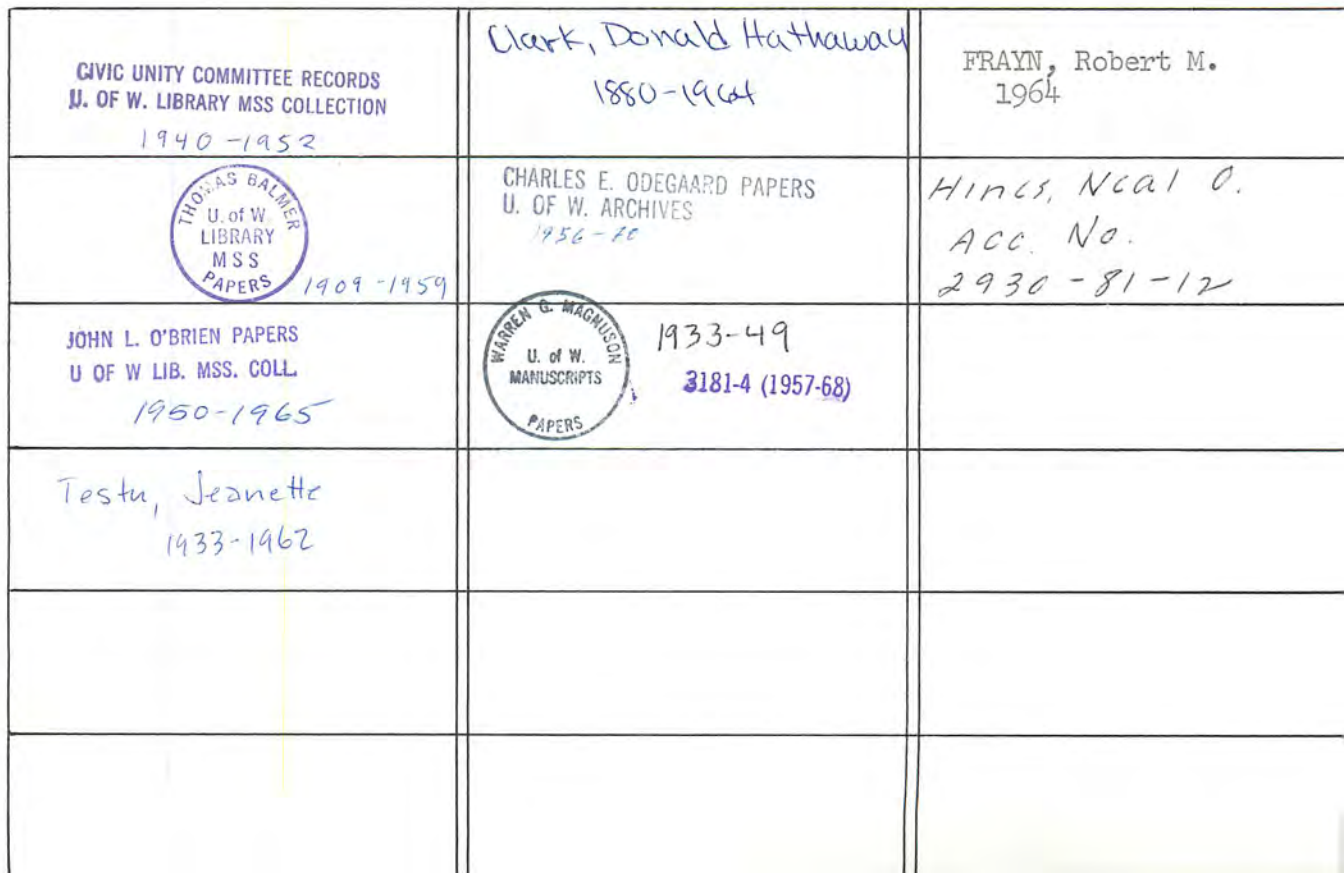 CIVIC UNITY COMMITTEE RECORDS
U. OF W. LIBRARY MSS COLLECTION
1940-1952
Clark, Donald Hathaway
1880-1964
FRAYN, Robert M.
1964
THOMAS BALMER
U. of W.
LIBRARY
MSS
PAPERS
1909-1959
CHARLES E. ODEGAARD PAPERS
U. OF W. ARCHIVES
1956-70
Hines, Neal O.
Acc. No.
2930-81-12
JOHN L. O'BRIEN PAPERS
U OF W LIB. MSS. COLL.
1950-1965
WARREN G. MAGNUSON
U. of W.
MANUSCRIPTS
PAPERS
1933-49
3181-4 (1957-68)
Testu, Jeanette
1933-1962